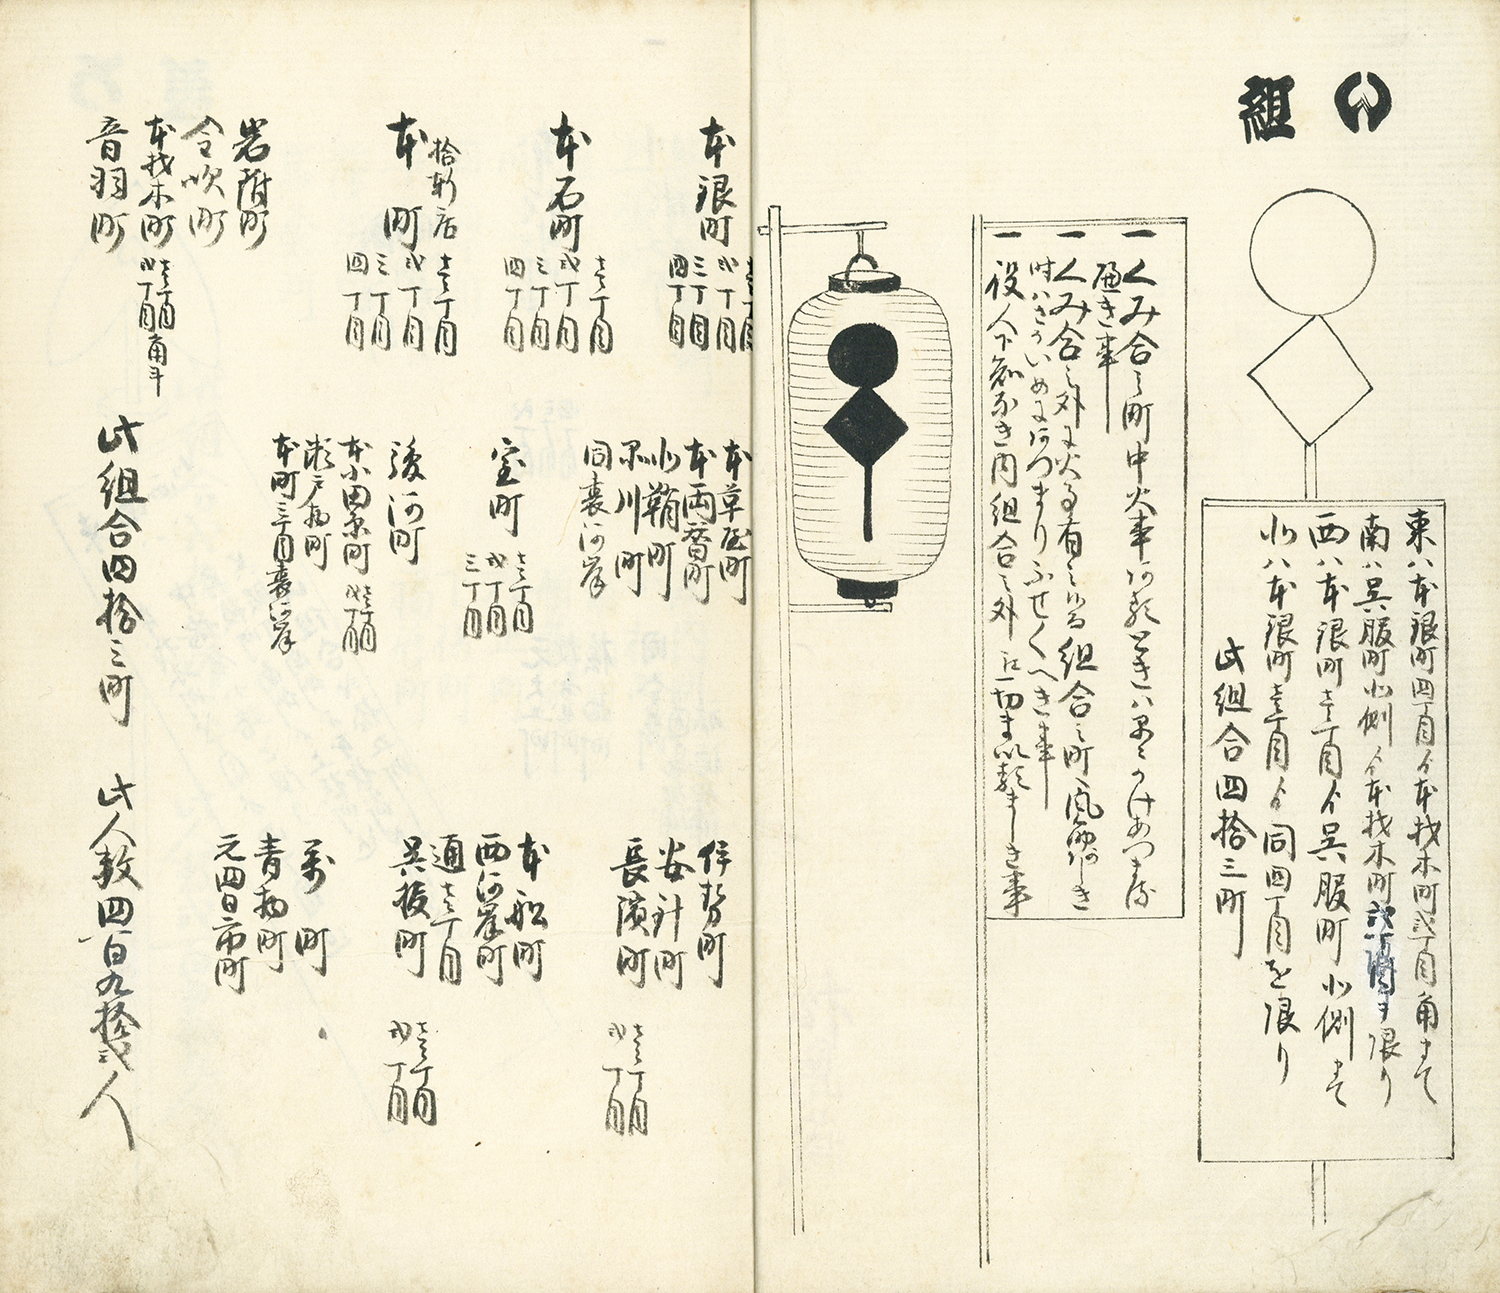 い組
東ハ本銀町四丁目ゟ本材木町弐丁目角まて
南ハ呉服町北側ゟ本材木町
ヲ限り
西ハ本銀町壱丁目ゟ呉服町北側まて
北ハ本銀町壱丁目ゟ同四丁目を限り
此組合四拾三町
一くみ合之町中火事
遍き事
一くみ合之外ニ火事有之
組合之町風
一役人下知なき内組合之外
一切
事
本銀町
壱丁目
弐丁目
三丁目
四丁目
本石町
壱丁目
弐丁目
三丁目
四丁目
拾軒店
本町
壱丁目
弐丁目
三丁目
四丁目
岩附町
金吹町
本材木町
壱丁目
弐丁目角斗
音羽町
本草屋町
本両替町
北鞘町
品川町
同裏河岸
室町
壱丁目
弐丁目
三丁目
駿河町
本小田原町
壱丁目
弐丁目
瀬戸物町
本町三丁目裏河岸
此組合四拾三町
伊勢町
安針町
長濱町
壱丁目
弐丁目
本船町
西河岸町
通壱丁目
呉服町
壱丁目
弐丁目
万町
青物町
元四日市町
此人数四百九拾弐人